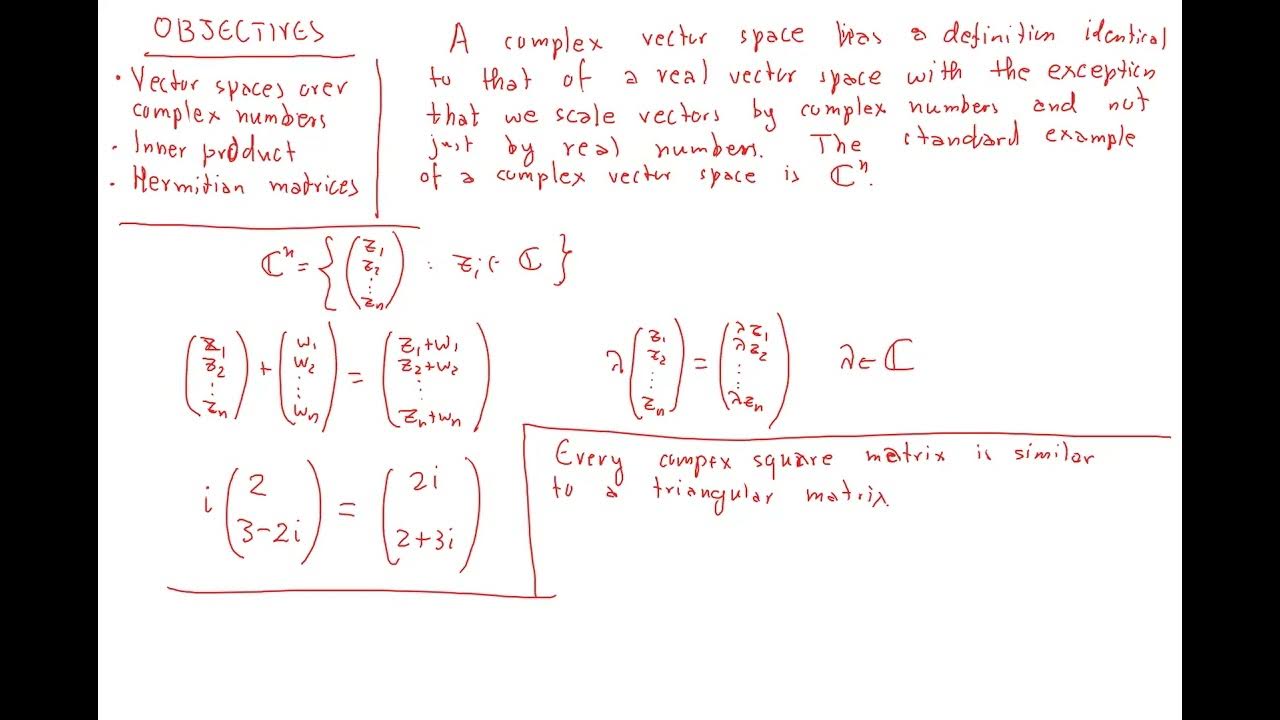 OBJECTIVES
• Vector spaces over
complex numbers
• Inner product
• Hermitian matrices
A complex vector space has a definition identical
to that of a real vector space with the exception
that we scale vectors by complex numbers and not
just by real numbers. The standard example
of a complex vector space is ℂⁿ.
ℂⁿ = { (z₁ z₂ ⋮ zₙ) : zᵢ ∈ ℂ }
(z₁ z₂ ⋮ zₙ) + (w₁ w₂ ⋮ wₙ) = (z₁+w₁ z₂+w₂ ⋮ zₙ+wₙ)
λ (z₁ z₂ ⋮ zₙ) = (λz₁ λz₂ ⋮ λzₙ) λ ∈ ℂ
i (2 3-2i) = (2i 2+3i)
Every compex square matrix is similar
to a triangular matrix.